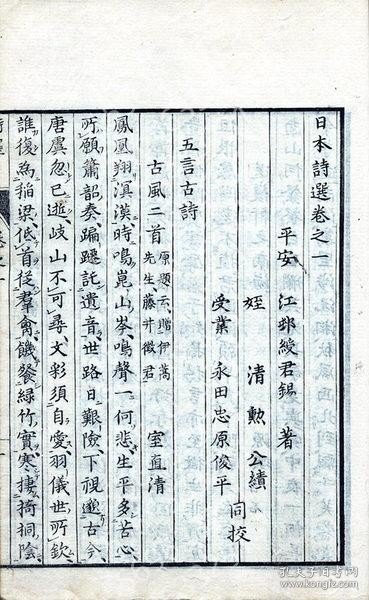 日本詩選卷之一
平安 江邨綬君錫 著
姪 清勲公績
受業 永田忠原俊平 同挍
五言古詩
古風二首 原題云、贈伊萬
先生藤井徴君 室直清
鳳凰翔溟漠時鳴崑山岑鳴聲一何悲生平多苦心
所願簫韶奏蹁躚託遺音世路日艱險下視邈古今
唐虞忽已逝岐山不可尋文彩須自愛羽儀世所欽
誰復爲稻梁低首從羣禽饑餐綠竹實寒棲掎桐陰